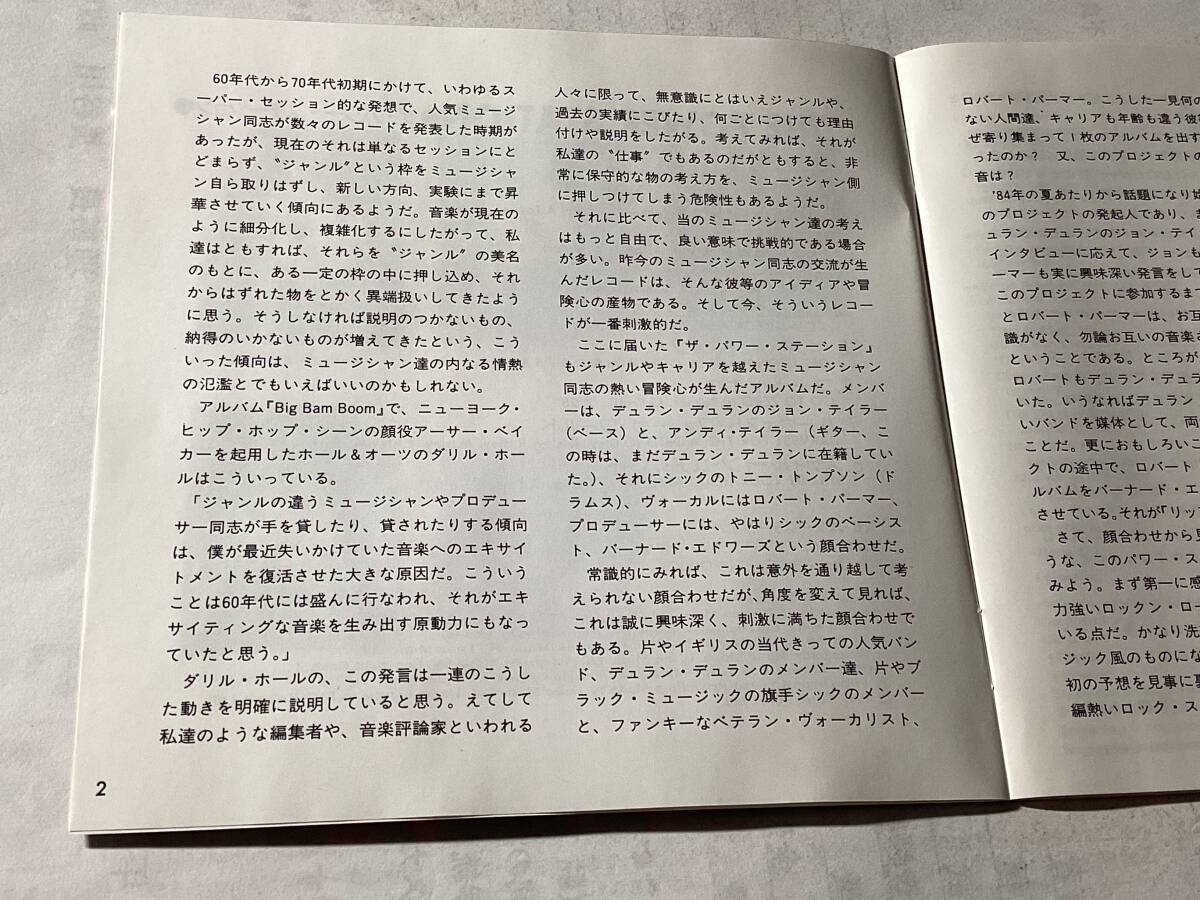 60年代から70年代初期にかけて、いわゆるス
ーパー・セッション的な発想で、人気ミュージ
シャン同志が数々のレコードを発表した時期が
あったが、現在のそれは単なるセッションにと
どまらず、〝ジャンル〟という枠をミュージシャ
ン自ら取りはずし、新しい方向、実験にまで昇
華させていく傾向にあるようだ。音楽が現在の
ように細分化し、複雑化するにしたがって、私
達はともすれば、それらを〝ジャンル〟の美名
のもとに、ある一定の枠の中に押し込め、それ
からはずれた物をとかく異端扱いしてきたよう
に思う。そうしなければ説明のつかないもの、
納得のいかないものが増えてきたという、こう
いった傾向は、ミュージシャン達の内なる情熱
の氾濫とでもいえばいいのかもしれない。
アルバム『Big Bam Boom』で、ニューヨーク・
ヒップ・ホップ・シーンの顔役アーサー・ベイ
カーを起用したホール＆オーツのダリル・ホー
ルはこういっている。
「ジャンルの違うミュージシャンやプロデュー
サー同志が手を貸したり、貸されたりする傾向
は、僕が最近失いかけていた音楽へのエキサイ
トメントを復活させた大きな原因だ。こういう
ことは60年代には盛んに行なわれ、それがエキ
サイティングな音楽を生み出す原動力にもなっ
ていたと思う。」
ダリル・ホールの、この発言は一連のこうし
た動きを明確に説明していると思う。えてして
私達のような編集者や、音楽評論家といわれる
2
人々に限って、無意識にとはいえジャンルや、
過去の実績にこびたり、何ごとにつけても理由
付けや説明をしたがる。考えてみれば、それが
私達の〝仕事〟でもあるのだがともすると、非
常に保守的な物の考え方を、ミュージシャン側
に押しつけてしまう危険性もあるようだ。
それに比べて、当のミュージシャン達の考え
はもっと自由で、良い意味で挑戦的である場合
が多い。昨今のミュージシャン同志の交流が生
んだレコードは、そんな彼等のアイディアや冒
険心の産物である。そして今、そういうレコー
ドが一番刺激的だ。
ここに届いた『ザ・パワー・ステーション』
もジャンルやキャリアを越えたミュージシャン
同志の熱い冒険心が生んだアルバムだ。メンバ
ーは、デュラン・デュランのジョン・テイラー
(ベース) と、アンディ・テイラー (ギター、こ
の時は、まだデュラン・デュランに在籍してい
た。)、それにシックのトニー・トンプソン (ド
ラムス)、ヴォーカルにはロバート・パーマー、
プロデューサーには、やはりシックのベーシス
ト、バーナード・エドワーズという顔合わせだ。
常識的にみれば、これは意外を通り越して考
えられない顔合わせだが、角度を変えて見れば、
これは誠に興味深く、刺激に満ちた顔合わせで
もある。片やイギリスの当代きっての人気バン
ド、デュラン・デュランのメンバー達、片やブ
ラック・ミュージックの旗手シックのメンバー
と、ファンキーなベテラン・ヴォーカリスト、
ロバート・パーマー。こうした一見何の
ない人間達、キャリアも年齢も違う彼
ぜ寄り集まって１枚のアルバムを出す
ったのか？ 又、このプロジェクトの
音は？
'84年の夏あたりから話題になり
のプロジェクトの発起人であり、
ュラン・デュランのジョン・テイ
インタビューに応えて、ジョンも
ーマーも実に興味深い発言をして
このプロジェクトに参加するまで
とロバート・パーマーは、お互
識がなく、勿論お互いの音楽
ということである。ところが
ロバートもデュラン・デュラ
いた。いうなればデュラン
いバンドを媒体として、両
ことだ。更におもしろいこ
クトの途中で、ロバート
ルバムをバーナード・エ
させている。それが『リッ
さて、顔合わせから
うな、このパワー・ス
みよう。まず第一に感
力強いロックン・ロー
いる点だ。かなり洗
ジック風のものにな
初の予想を見事に
編熱いロック・ス